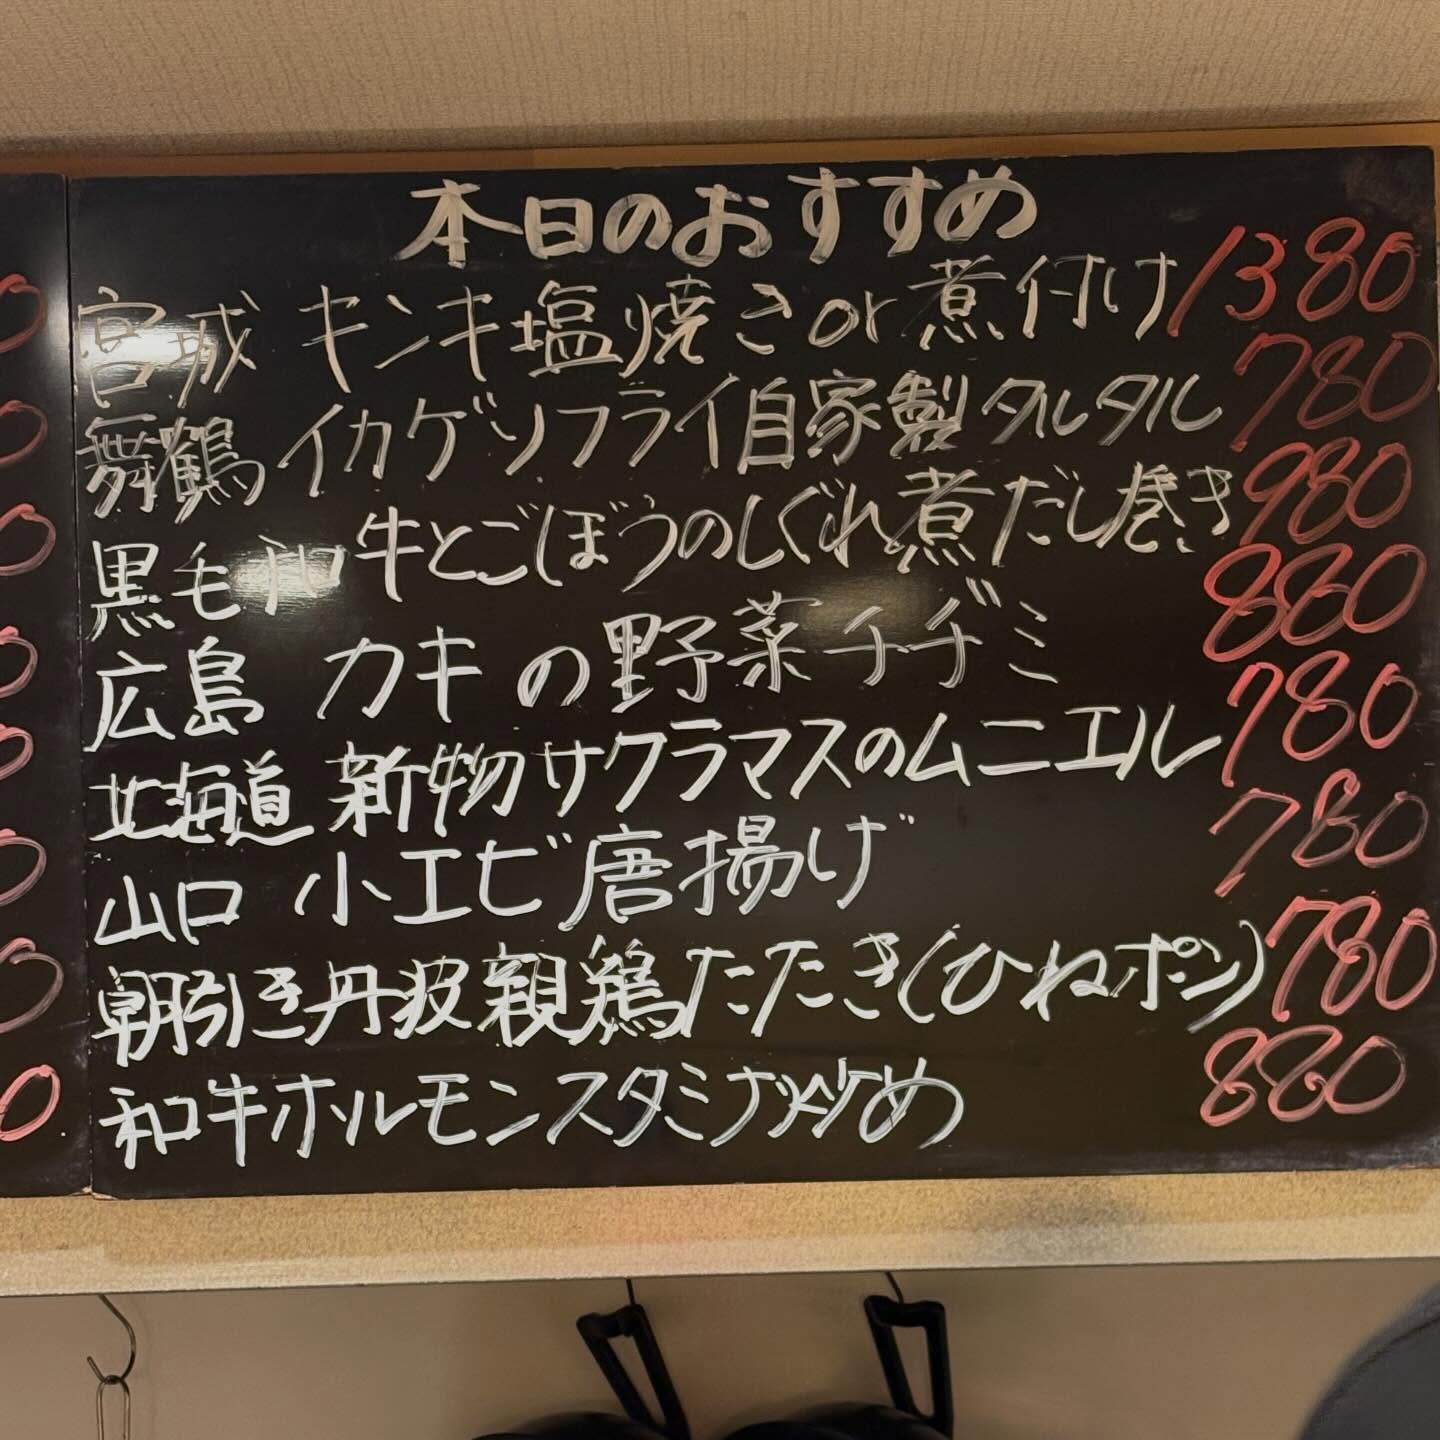 本日のおすすめ
宮城 キンキ塩焼きor煮付け 1380
舞鶴 イカゲソフライ自家製タルタル 780
黒毛和牛とごぼうのしぐれ煮だし巻き 980
広島 カキの野菜チヂミ 880
北海道 新物サクラマスのムニエル 780
山口 小エビ唐揚げ 780
朝引き丹波親鶏たたき(ひねポン) 780
和牛ホルモンスタミナ炒め 880